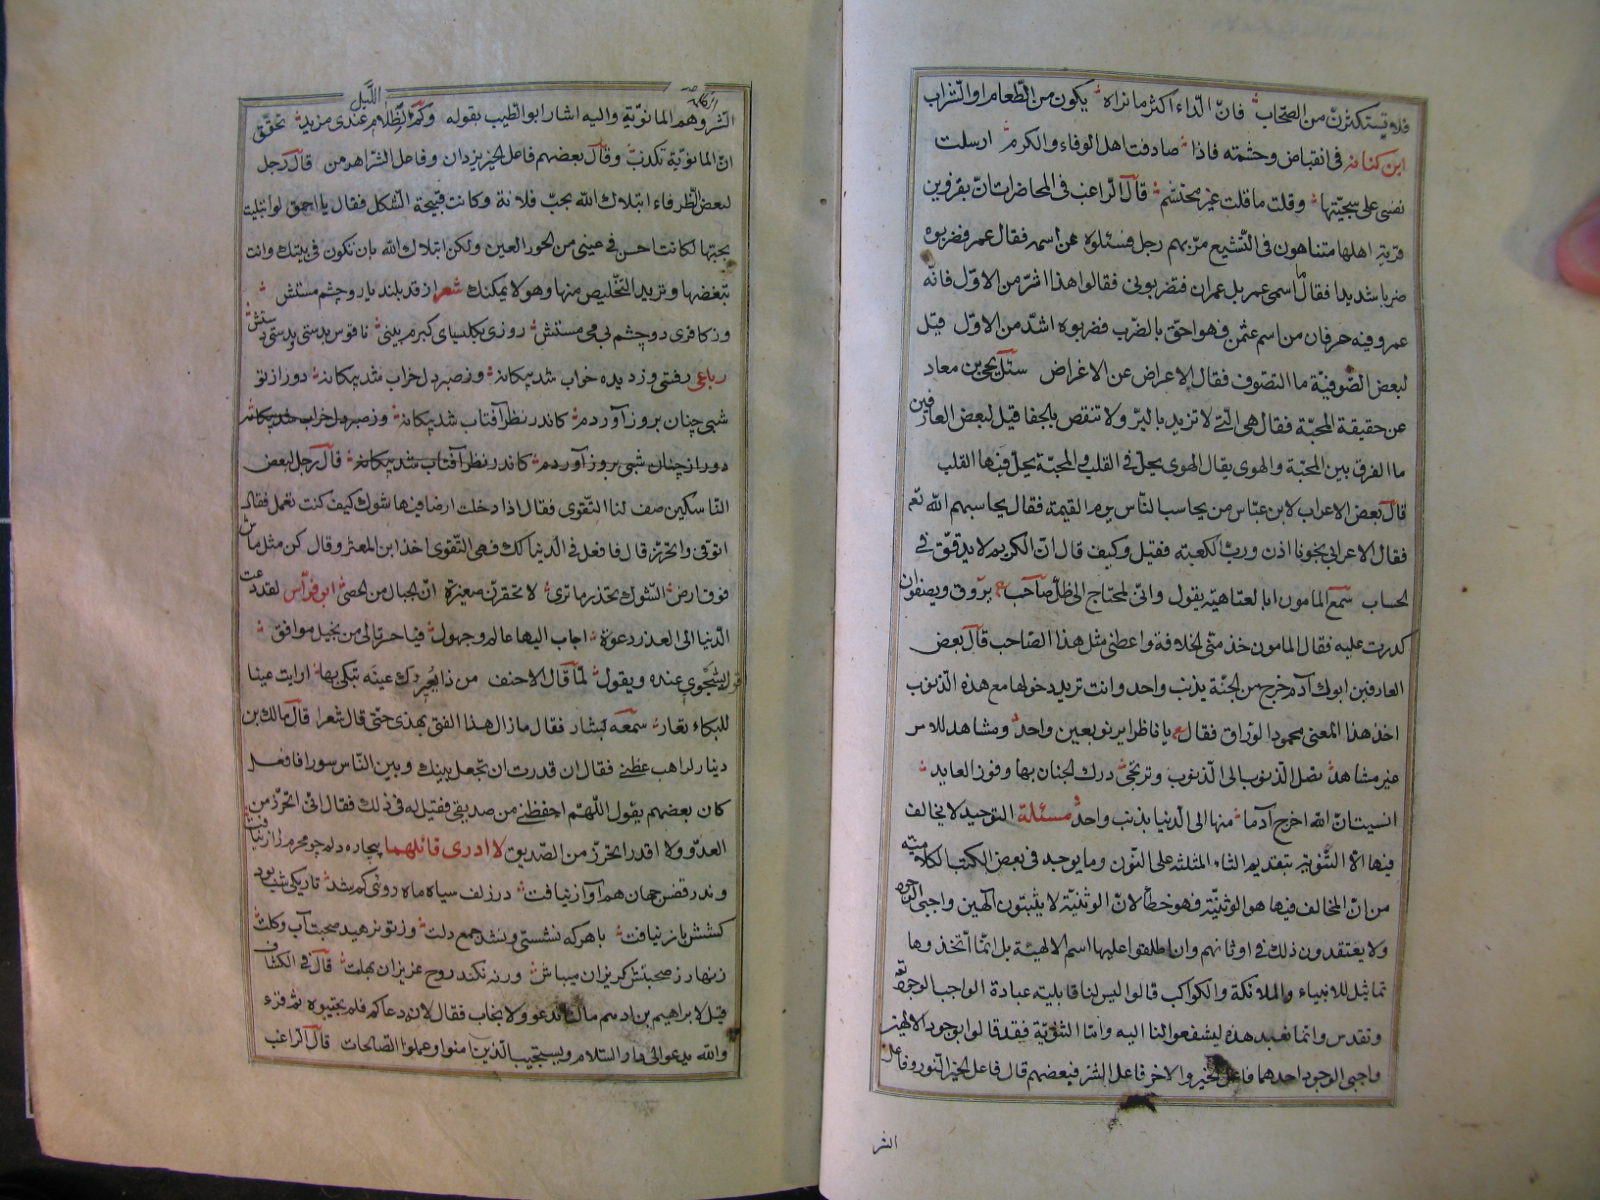 فلا تستكثرنّ من الصّحاب فانّ الدّاء اكثر ما تراه يكون من الطّعام او الشّراب
ابن كنانه فى انقباض وحشمته فاذا صادفت اهل الوفاء والكرم ارسلت
نفسى على سجيّتها وقلت ما قلت غير محتشم قال الرّاغب فى المحاضرات انّ بقزوين
قرية اهلها متناهون فى التّشيع مرّ بهم رجل فسئلوه عن اسمه فقال عمر فضربوه
ضربا شديدا فقال ما اسمى عمر بل عمران فضربونى فقالوا هذا اشرّ من الاوّل فانّه
عمر وفيه حرفان من اسم عثمن فهو احقّ بالضّرب فضربوه اشدّ من الاوّل قيل
لبعض الصّوفيّة ما التصّوف فقال الاعراض عن الاغراض سئل يحيى بن معاد
عن حقيقة المحبّة فقال هى الّتى لا تزيد بالبرّ ولا تنقص بالجفا قيل لبعض العارفين
ما الفرق بين المحبّة والهوى يقال الهوى يحلّ فى القلب والمحبّة يحلّ فيها القلب
قال بعض الاعراب لابن عبّاس من يحاسب النّاس يوم القيمة فقال يحاسبهم الله تع
فقال الاعرابى نجونا اذن وربّ الكعبة فقيل وكيف قال انّ الكريم لا يدقّق فى
الحساب سمع المامون ابا لعتاهيّه يقول وانّى لمحتاج الى ظلّ صاحب ع يروق ويصفو ان
كدرت عليه فقال المامون خذ منّى الخلافة واعطنى مثل هذا الصّاحب قال بعض
العارفين ابوك آدم خرج من الجنّة بذنب واحد وانت تريد دخولها مع هذه الذّنوب
اخذ هذا المعنى محمود الورّاق فقال ع يا ناظرا يرنو بعين واحد ومشاهد للامر
غير مشاهد تصل الذّنوب الى الذّنوب وترتجى درك الجنان بها وفوز العابد
انسيت انّ الله اخرج آدما منها الى الدّنيا بذنب واحد مسئلة التوحيد لا يخالف
فيها الّا الثّنويّة بتقديم الثاء المثلثه على النّون وما يوجد فى بعض الكتب الكلاميّة
من انّ المخالف فيها هو الوثنيّة فهو خطأ لانّ الوثنيّة لا يثبتون آلهين واجبى الوجود
ولا يعتقدون ذلك فى اوثانهم وان اطلقوا عليها اسم الالهيّة بل انّما اتّخذوها
تماثيل للانبياء والملائكة والكواكب قالوا ليس لنا قابليّة عبادة الواجب الوجود تع
وتقدس وانما نعبد هذه ليشفعوا لنا اليه وامّا الثنويّة فقد قالوا بوجود الالهين
واجبى الوجود احدهما فاعل الخير والاخر فاعل الشّر فبعضهم قال فاعل الخير النّور وفاعل
الشر
الشّر وهم المانويّة واليه اشار ابو الطّيب بقوله وكم لظّلام اللّيل عندى من يد تحقّق
انّ المانويّة تكذب وقال بعضهم فاعل الخير يزدان وفاعل الشّر اهرمن قال رجل
لبعض الظّرفاء ابتلاك الله بحبّ فلانة وكانت قبيحة الشّكل فقال يا احمق لو ابتليت
بحبّها لكانت احسن فى عينى من الحور العين ولكن ابتلاك الله بان تكون فى بيتك وانت
تبغضها وتريد التخّليص منها وهو لا يمكنك شعر از قد بلند يار وچشم مستش
وز كافرى دو چشم بى مى مستش روزى بكليساى كبرم بينى ناقوس بدستى وبدستى دستش
رباعى رفتى وز ديده خواب شد بيكانه وز صبر دل خراب شد بيكانه دور از تو
شبى چنان بروز آوردم كاندر نظر آفتاب شد بيكانه وز صبر دل خراب شد بيكانه
دور از چنان شبى بروز آوردم كاندر نظر آفتاب شد بيكانه قال رجل لبعض
النّاسكين صف لنا التّقوى فقال اذا دخلت ارضا فيها شوك كيف كنت تعمل فقال
اتوقى واتحرّز قال فافعل فى الدّنيا كذلك فهى التّقوى اخذ ابن المعتز وقال كن مثل ماش
فوق ارض الشّوك يحذر ما ترى لا تحقرنّ صغيرة انّ الجبال من الحصى ابو فراس لقد دعت
الدّنيا الى الغدر دعوة اجاب اليها عالم وجهول فيا حسرتا لى من بخيل موافق
قول بشجوى عنده ويقول لمّا قال الاحنف من ذا يعيرك عينه تبكى بها ارايت عينا
للبكاء تعار سمعه بشار فقال ما زال هذا الفتى يهذى حتى قال شعرا قال مالك بن
دينار لراهب عظنى فقال ان قدرت ان تجعل بينك وبين النّاس سورا فافعل
كان بعضهم يقول اللّهمّ احفظنى من صديقى فقيل له فى ذلك فقال انّى اتحرّز من
العدّو ولا اقدر اتحرّز من الصّديق لا ادرى قائلهما بيچاره دلم چو محرم راز نيافت
وندر قفس جهان هم آواز نيافت در زلف سياه ماه روئى كم شد تاريك شبى بود
كسش باز نيافت با هر كه نشستى ونشد جمع دلت وز تو نرهيد صحبت آب وكلت
زنهار ز صحبتش كريزان ميباش ورنه نكند روح عزيزان بهلت قال فى الكشّاف
قيل لابراهيم بن ادهم مالنا ندعو ولا نجاب فقال لانه دعاكم فلم تجيبوه ثم قرء
والله يدعو الى دار السّلام ويستجيب الّذين امنوا وعملوا الصّالحات قال الرّاغب